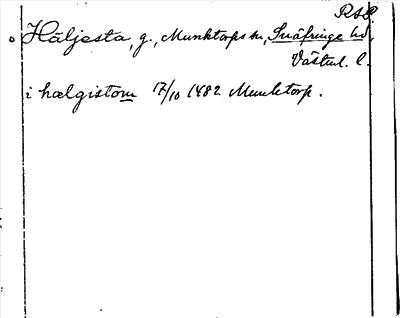 RAP
Häljesta, g., Munktorps sn, Snäfringe hd,
Västml. l.
i hælgistom 7/10 1482 Munktorp.